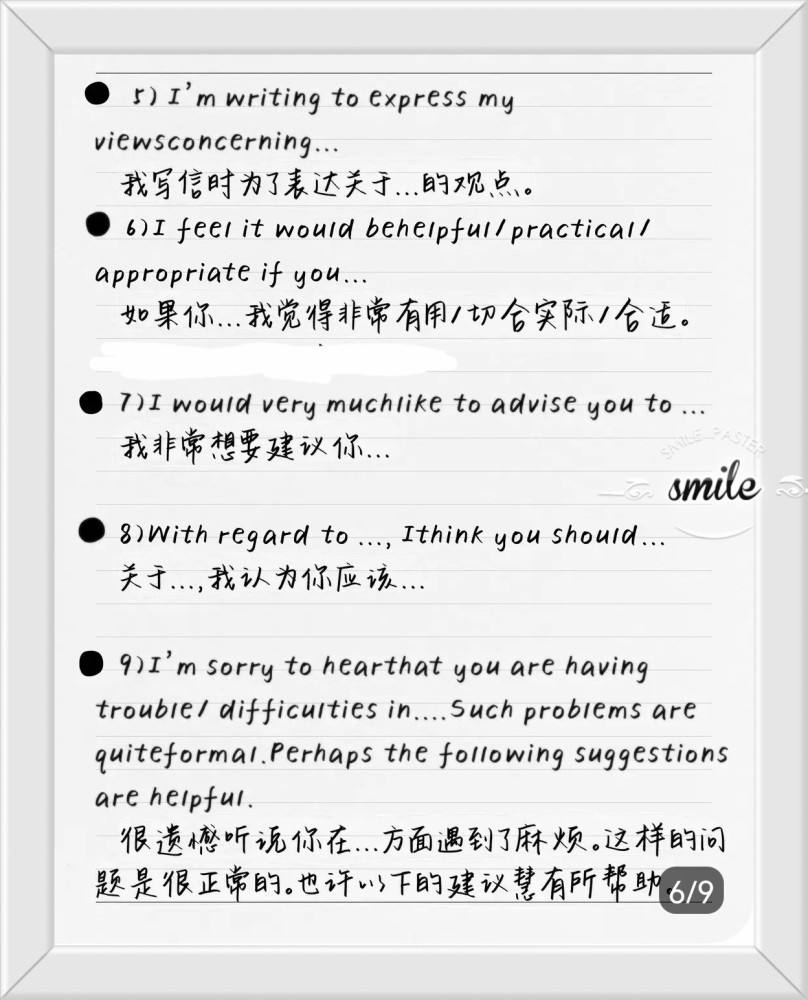 5) I'm writing to express my
viewsconcerning...
我写信时为了表达关于...的观点。
6)I feel it would behelpful/practical/
appropriate if you...
如果你...我觉得非常有用/切合实际/合适。
7)I would very muchlike to advise you to ...
我非常想要建议你...
SMILE_PASTER
smile
8)With regard to ..., Ithink you should...
关于...,我认为你应该...
9)I'm sorry to hearthat you are having
trouble/ difficulties in....Such problems are
quiteformal.Perhaps the following suggestions
are helpful.
很遗憾听说你在...方面遇到了麻烦。这样的问
题是很正常的。也许以下的建议慧有所帮助。
6/9